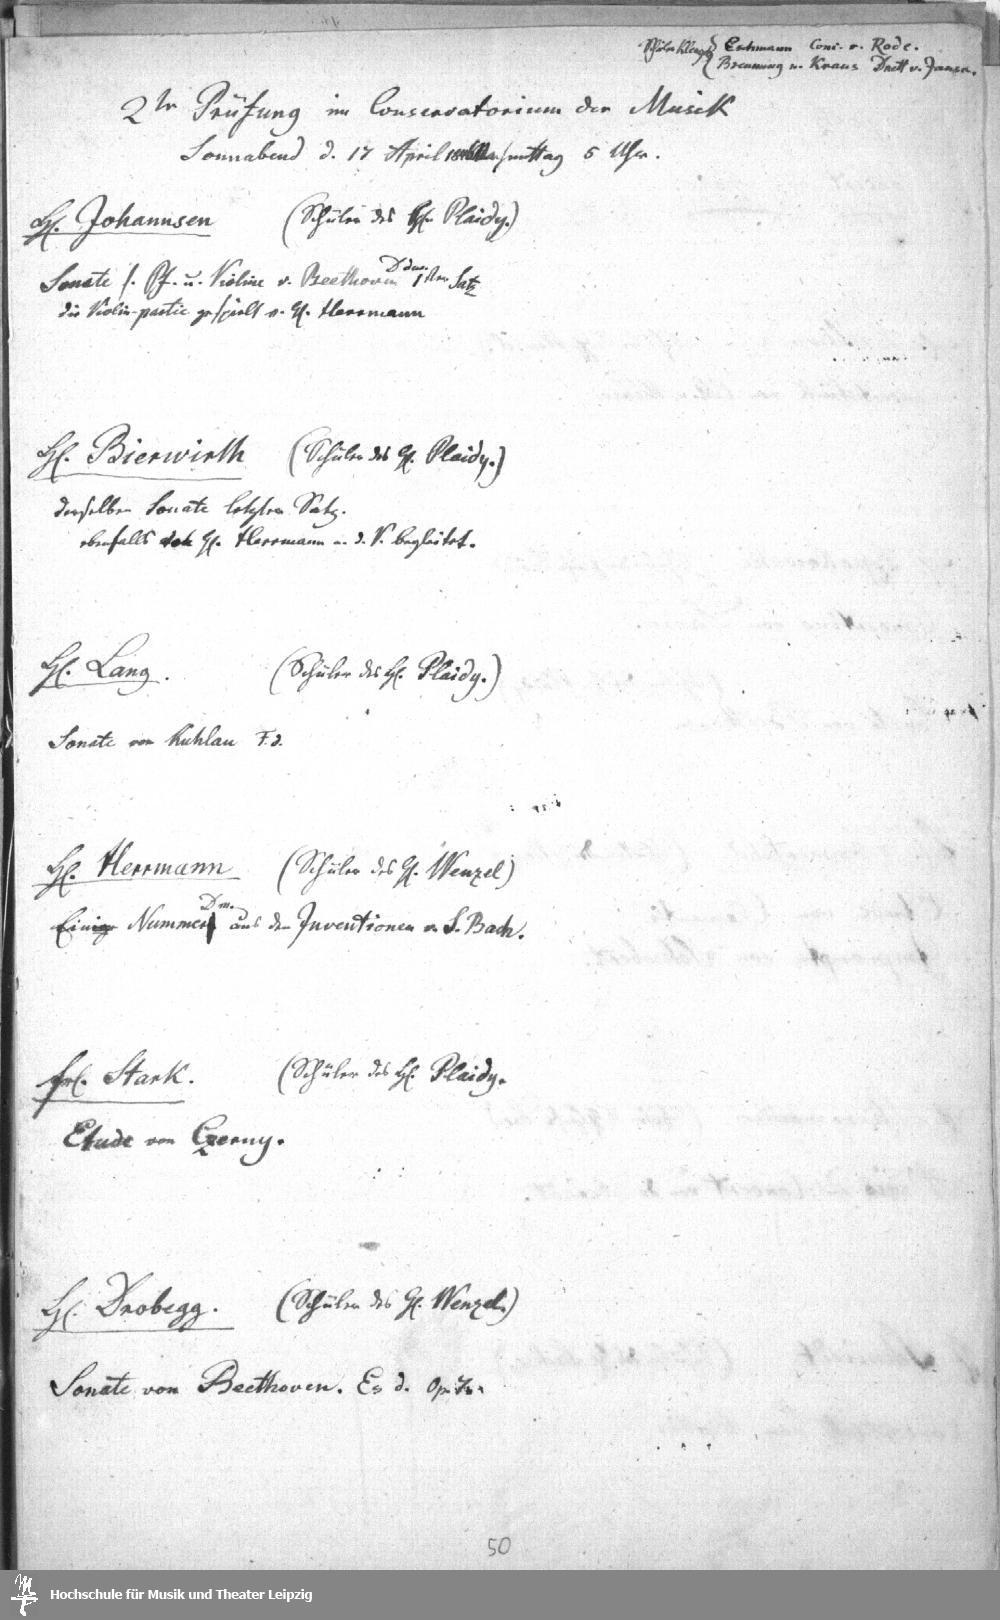 Schüler Klengel { Eschmann Conc. v. Rode.
Breunung u. Kraus Duett v. Jansa.
2te Prüfung im Conservatorium der Musik
Sonnabend d. 17 April Nachmittag 5 Uhr.
H. Johannsen (Schüler des H. Plaidy.)
Sonate f. Pf. u. Violine v. Beethoven D dur. 1sten Satz
die Violin-partie gespielt v. H. Herrmann
H. Bierwirth (Schüler des H. Plaidy.)
derselben Sonate letzten Satz.
ebenfalls H. Herrmann a. d. V. begleitet.
H. Lang. (Schüler des H. Plaidy.)
Sonate von Kuhlau F. d.
H. Herrmann (Schüler des H. Wenzel)
Einige Nummer D m. aus den Inventionen v. S. Bach.
Frl. Stark. (Schüler des H. Plaidy.
Etude von Czerny.
H. Drobegg. (Schüler des H. Wenzel.)
Sonate von Beethoven. Es d. Op. 7.
50
Hochschule für Musik und Theater Leipzig